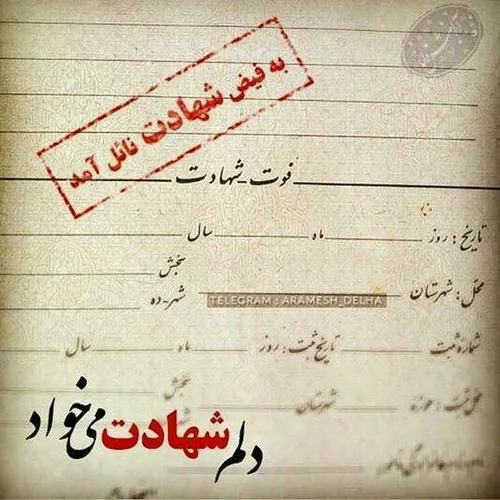 به فیض شهادت نائل آمد
فوت_شهادت
تاریخ: روز ماه سال
محل: شهرستان بخش
شهر-ده
TELEGRAM : ARAMESH_DELHA
شماره ثبت تاریخ ثبت: روز ماه سال
محل ثبت: حوزه شهرستان بخش
دلم شهادت می‌خواد